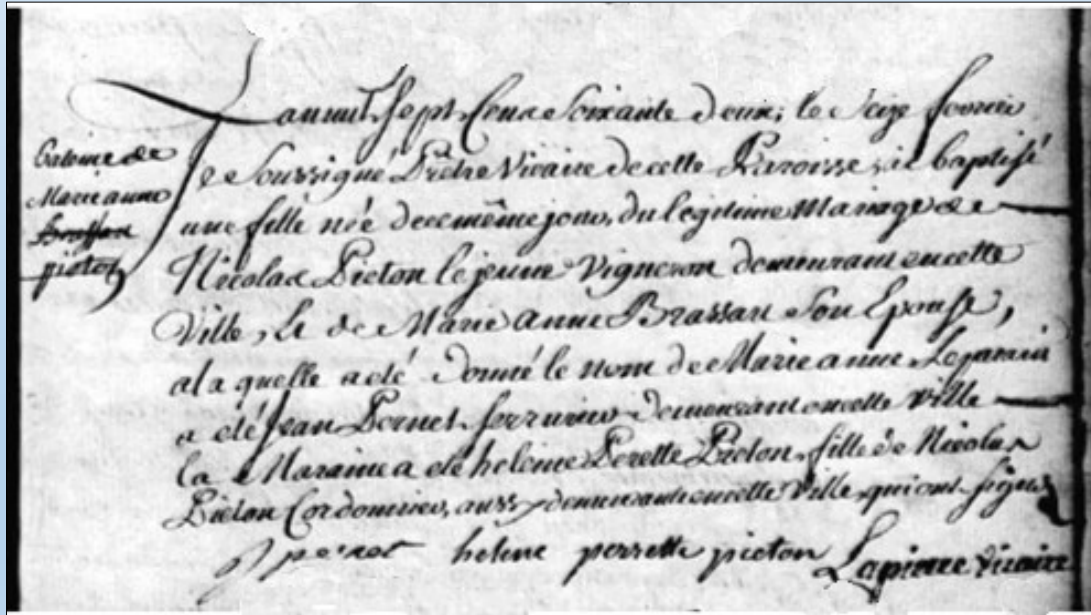 Batême de
Marie anne
pieton
L'an mil sept Cens Soixante deux, le Seize fevrier
je Soussigné Prêtre Vicaire de cette Paroisse, ai baptisé
une fille née de ce même jour, du legitime Mariage de
Nicolas Pieton le jeune Vigneron demeurant en cette
Ville, Et de Marie Anne Brassart Son Epouse,
a la quelle a été donné le nom de Marie anne. Le parain
a eté Jean Pernet Serrurier demeurant en cette Ville
la Maraine a eté helene Perette Pieton, fille de Nicolas
Pieton Cordonnier, aussy demeurant en cette Ville, qui ont signés
J pernet helene perrette pieton Lapierre vicaire